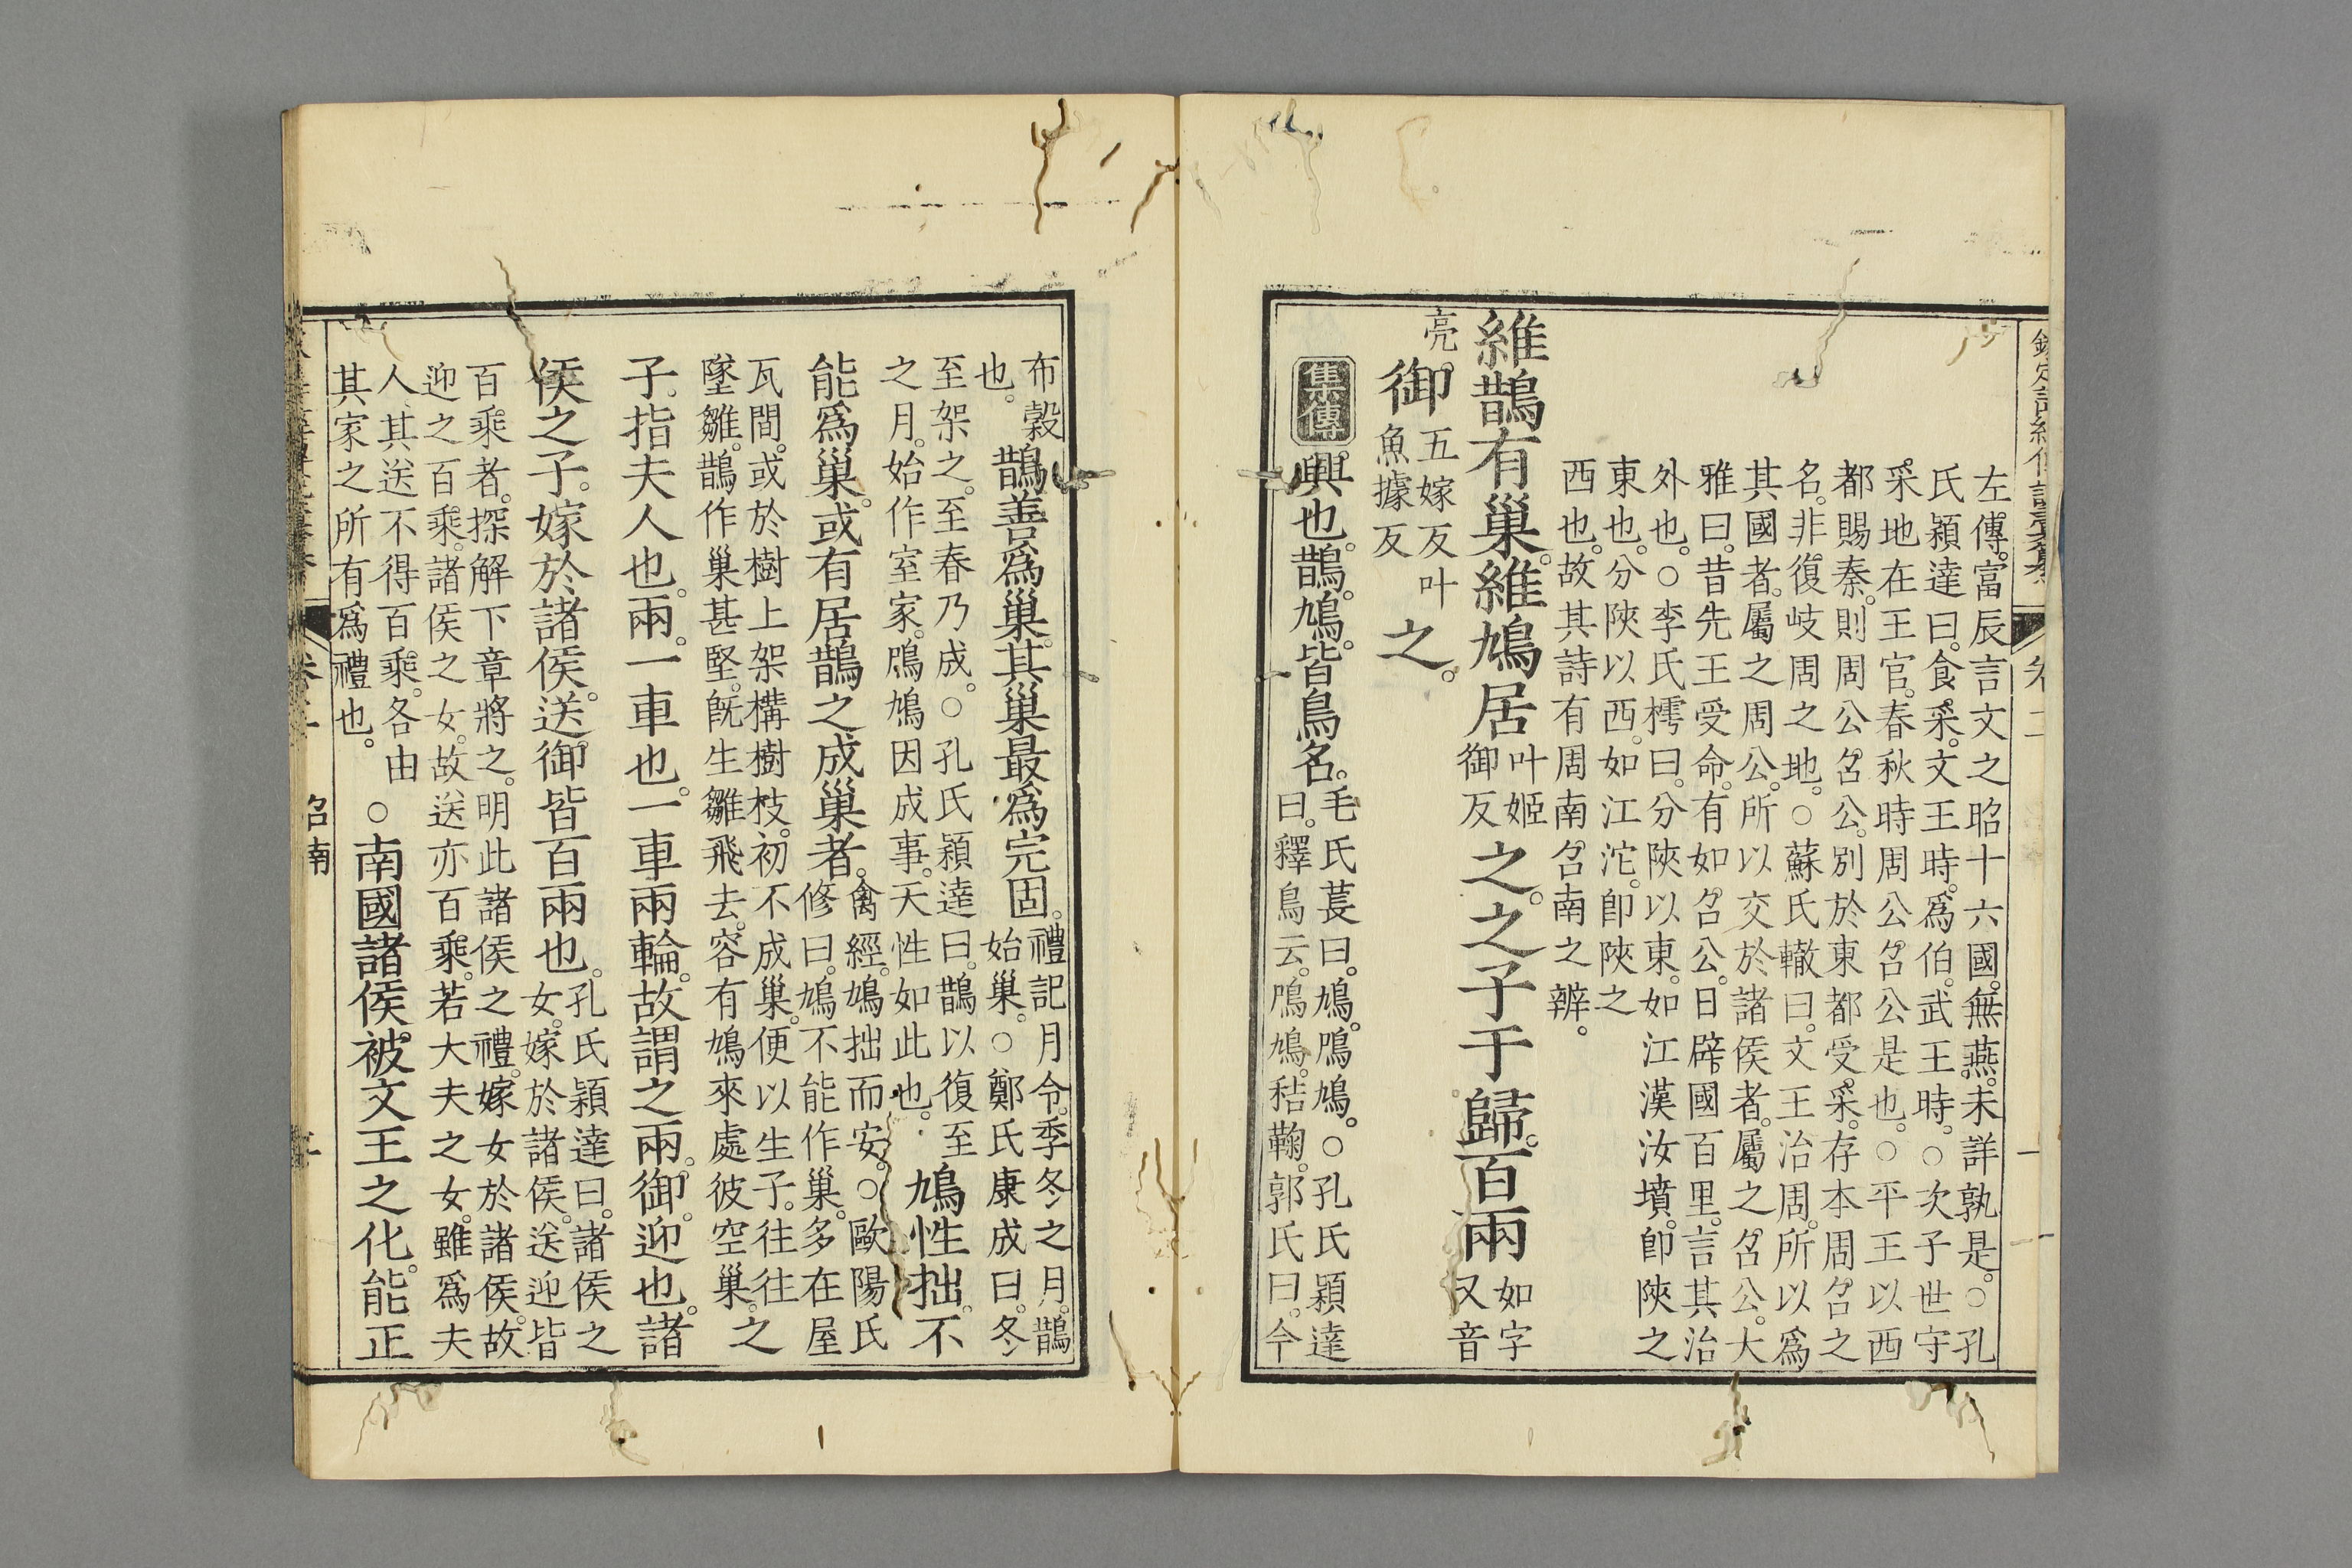 欽定詩經傳說彙纂 卷二
左傳。富辰言文之昭十六國。無燕。未詳孰是。○孔
氏穎達曰。食采。文王時。爲伯。武王時。○次子世守
采地在王官。春秋時周公召公是也。○平王以西
都賜秦。則周公召公。別於東都受采。存本周召之
名。非復岐周之地。○蘇氏轍曰。文王治周。所以爲
其國者。屬之周公。所以交於諸侯者。屬之召公。大
雅曰。昔先王受命。有如召公。日辟國百里。言其治
外也。○李氏樗曰。分陝以東。如江漢汝墳。卽陝之
東也。分陝以西。如江沱。卽陝之
西也。故其詩有周南召南之辨。
維鵲有巢。維鳩居叶姬御反之。之子于歸。百兩如字又音
亮。御五嫁反叶魚據反之。
集傳興也。鵲。鳩。皆鳥名。毛氏萇曰。鳩。鳲鳩。○孔氏穎達曰。釋鳥云。鳲鳩。秸鞠。郭氏曰。今
布穀也。鵲善爲巢。其巢最爲完固。禮記月令。季冬之月。鵲始巢。○鄭氏康成曰。冬
至架之。至春乃成。○孔氏穎達曰。鵲以復至之月。始作室家。鳲鳩因成事。天性如此也。鳩性拙。不
能爲巢。或有居鵲之成巢者。禽經。鳩拙而安。○歐陽氏修曰。鳩不能作巢。多在屋
瓦間。或於樹上架構樹枝。初不成巢。便以生子。往往墜雛。鵲作巢甚堅。旣生雛飛去。容有鳩來處彼空巢。之
子。指夫人也。兩。一車也。一車兩輪。故謂之兩。御。迎也。諸
侯之子。嫁於諸侯。送。御。皆百兩也。孔氏穎達曰。諸侯之女。嫁於諸侯。送迎皆
百乘者。探解下章將之。明此諸侯之禮。嫁女於諸侯。故迎之百乘。諸侯之女。故送亦百乘。若大夫之女。雖爲夫
人。其送不得百乘。各由其家之所有爲禮也。○南國諸侯。被文王之化。能正
召南